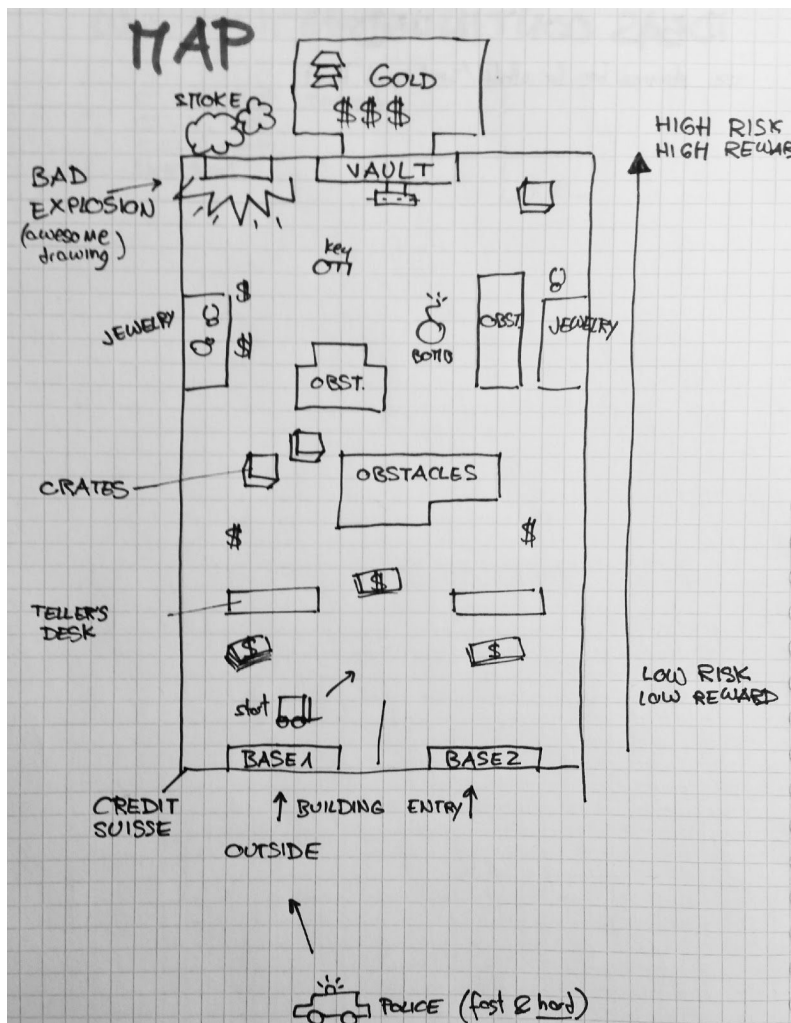 MAP
GOLD
$$$
SMOKE
HIGH RISK
HIGH REWARD
VAULT
BAD
EXPLOSION
(awesome
drawing)
key
$
JEWELRY
$
BOMB
OBST.
JEWELRY
OBST.
OBSTACLES
CRATES
$
$
$
TELLER'S
DESK
$
$
LOW RISK
LOW REWARD
start
BASE 1
BASE 2
CREDIT
SUISSE
BUILDING ENTRY
OUTSIDE
POLICE (fast & hard)